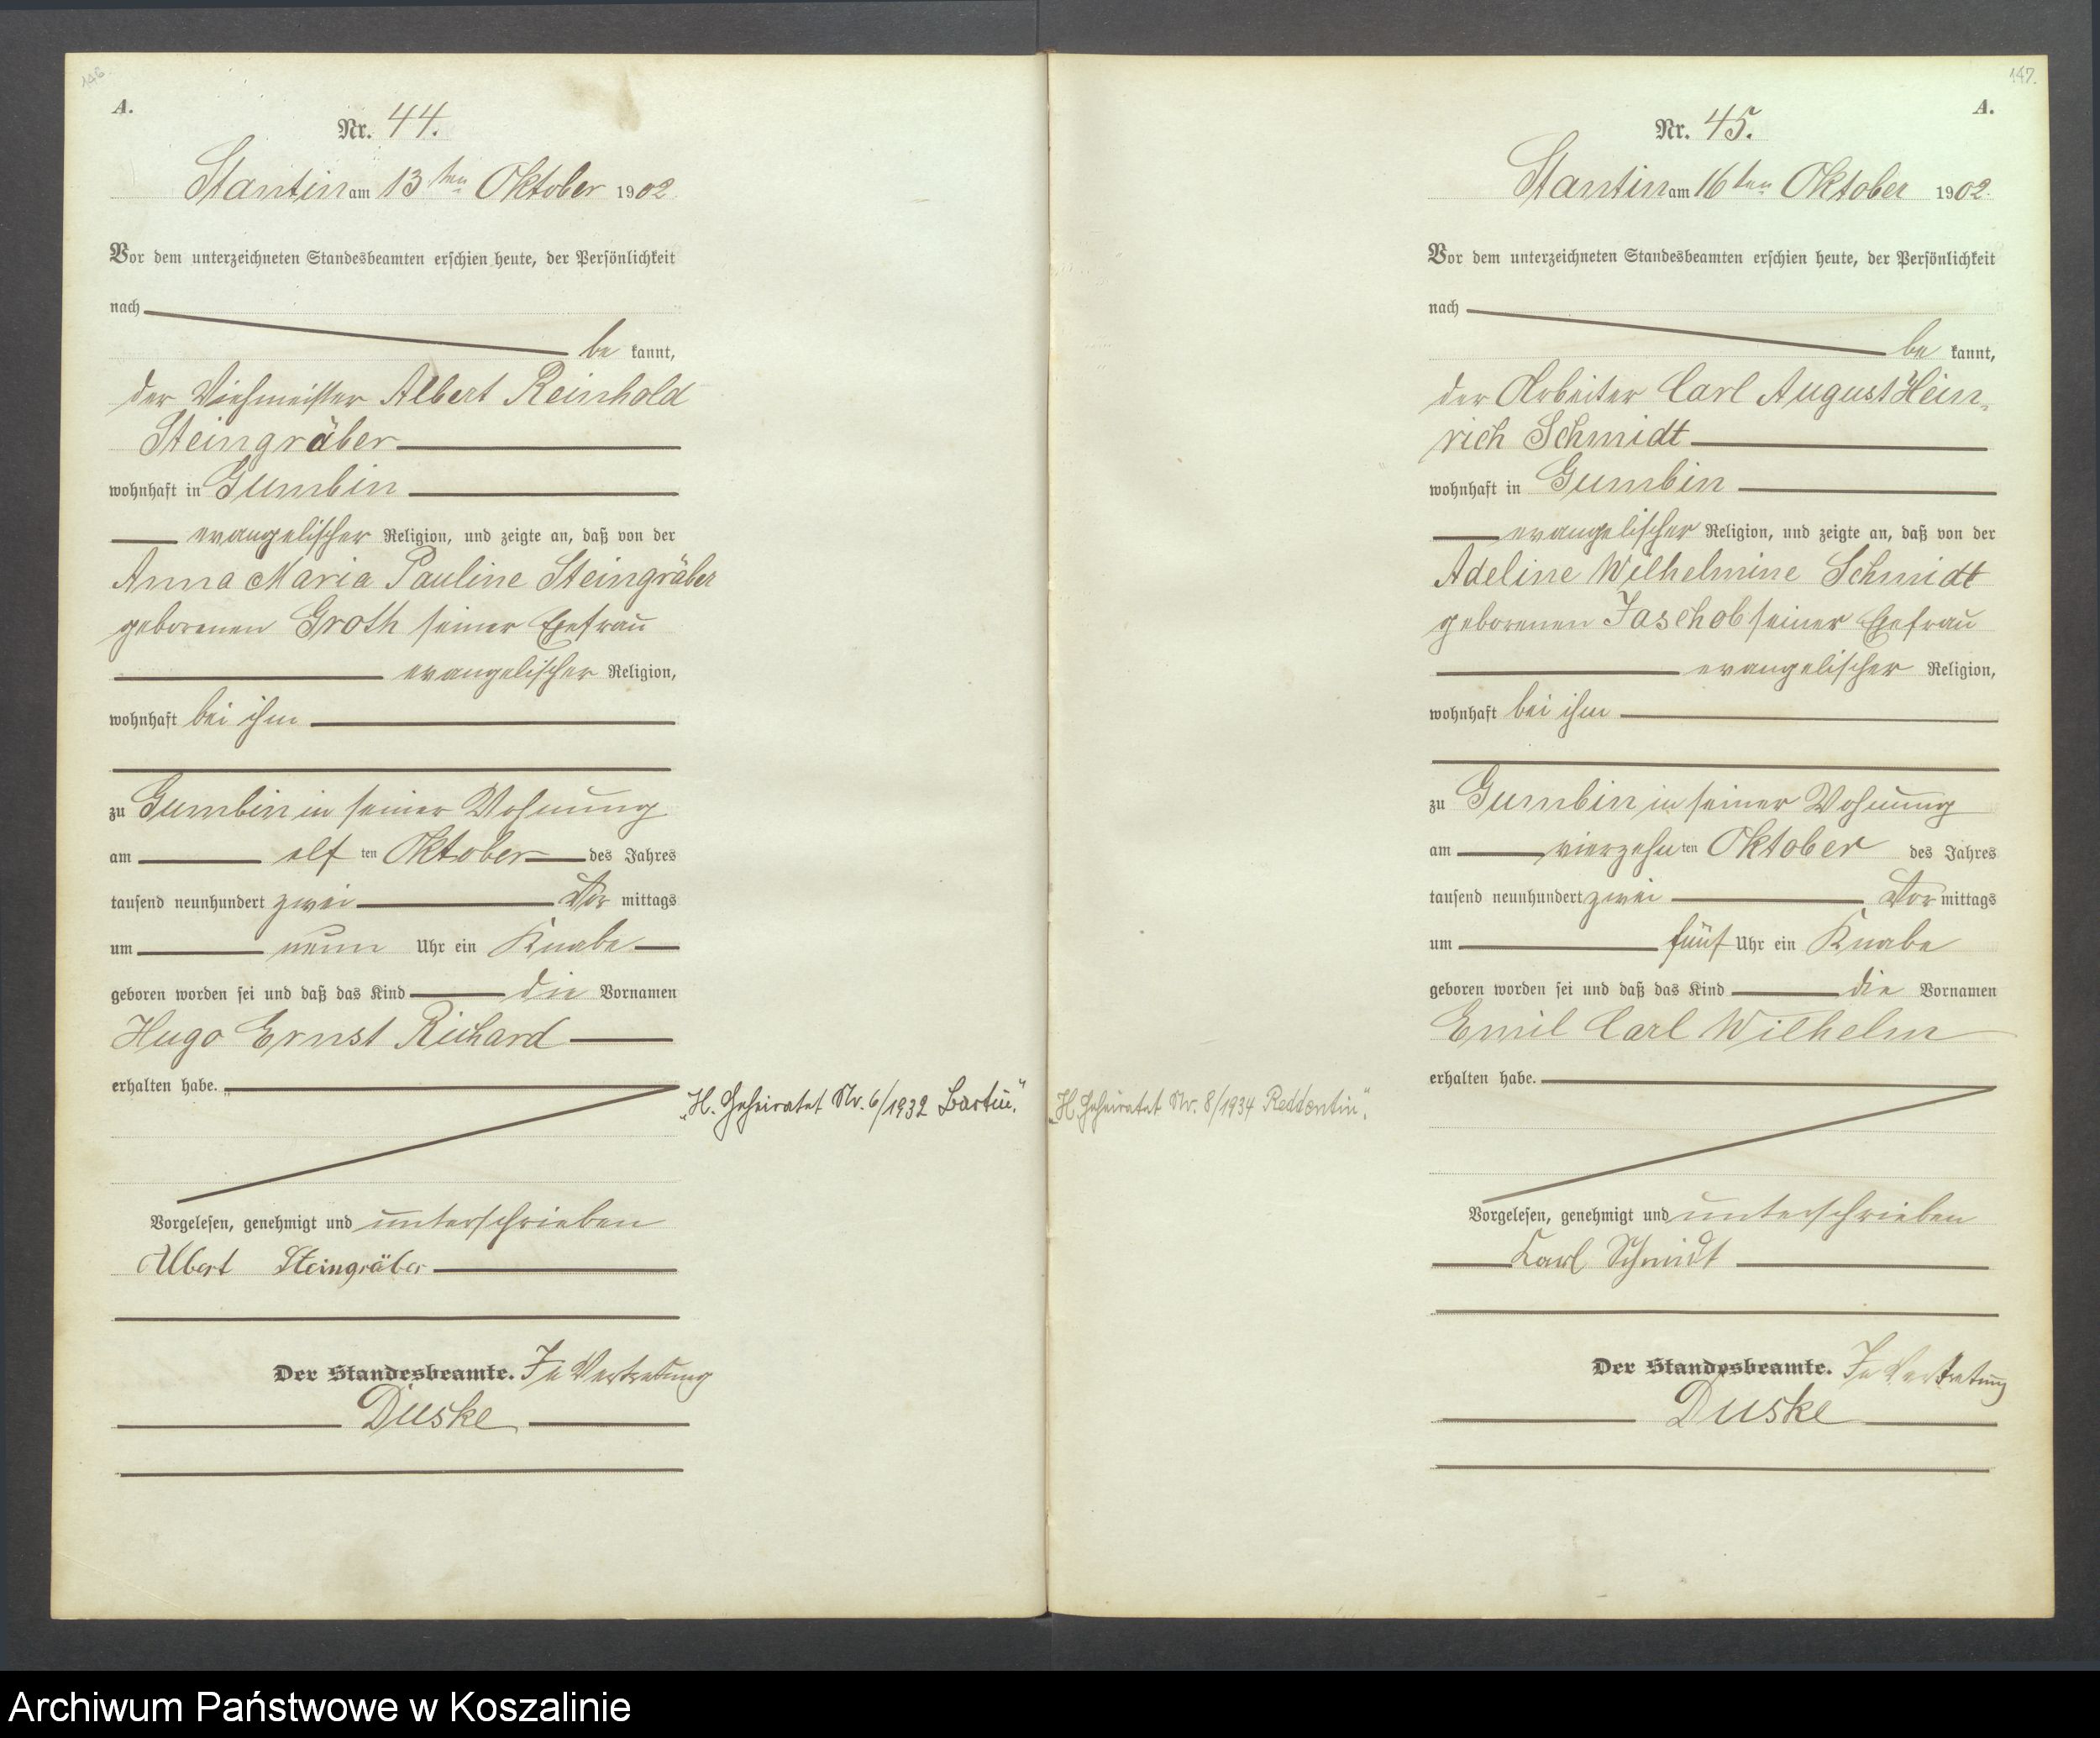 146.
A.
Nr. 44.
Stantin am 13ten Oktober 1902.
Vor dem unterzeichneten Standesbeamten erschien heute, der Persönlichkeit
nach
be kannt,
der Viehmeister Albert Reinhold
Steingräber
wohnhaft in Gumbin
evangelischer Religion, und zeigte an, daß von der
Anna Maria Pauline Steingräber
geborenen Groth seiner Ehefrau
evangelischer Religion,
wohnhaft bei ihm
zu Gumbin in seiner Wohnung
am elf ten Oktober des Jahres
tausend neunhundert zwei Vor mittags
um neun Uhr ein Knabe
geboren worden sei und daß das Kind die Vornamen
Hugo Ernst Richard
erhalten habe.
„H. Geheiratet Nr. 6/1932 Bartin."
Vorgelesen, genehmigt und unterschrieben
Albert Steingräber
Der Standesbeamte. In Vertretung
Duske
147.
A.
Nr. 45.
Stantin am 16ten Oktober 1902.
Vor dem unterzeichneten Standesbeamten erschien heute, der Persönlichkeit
nach
be kannt,
der Arbeiter Carl August Hein-
rich Schmidt
wohnhaft in Gumbin
evangelischer Religion, und zeigte an, daß von der
Adeline Wilhelmine Schmidt
geborenen Jaschob seiner Ehefrau
evangelischer Religion,
wohnhaft bei ihm
zu Gumbin in seiner Wohnung
am vierzehn ten Oktober des Jahres
tausend neunhundert zwei Vor mittags
um fünf Uhr ein Knabe
geboren worden sei und daß das Kind die Vornamen
Emil Carl Wilhelm
erhalten habe.
„H. Geheiratet Nr. 8/1934 Reddentin".
Vorgelesen, genehmigt und unterschrieben
Karl Schmidt
Der Standesbeamte. In Vertretung
Duske
Archiwum Państwowe w Koszalinie